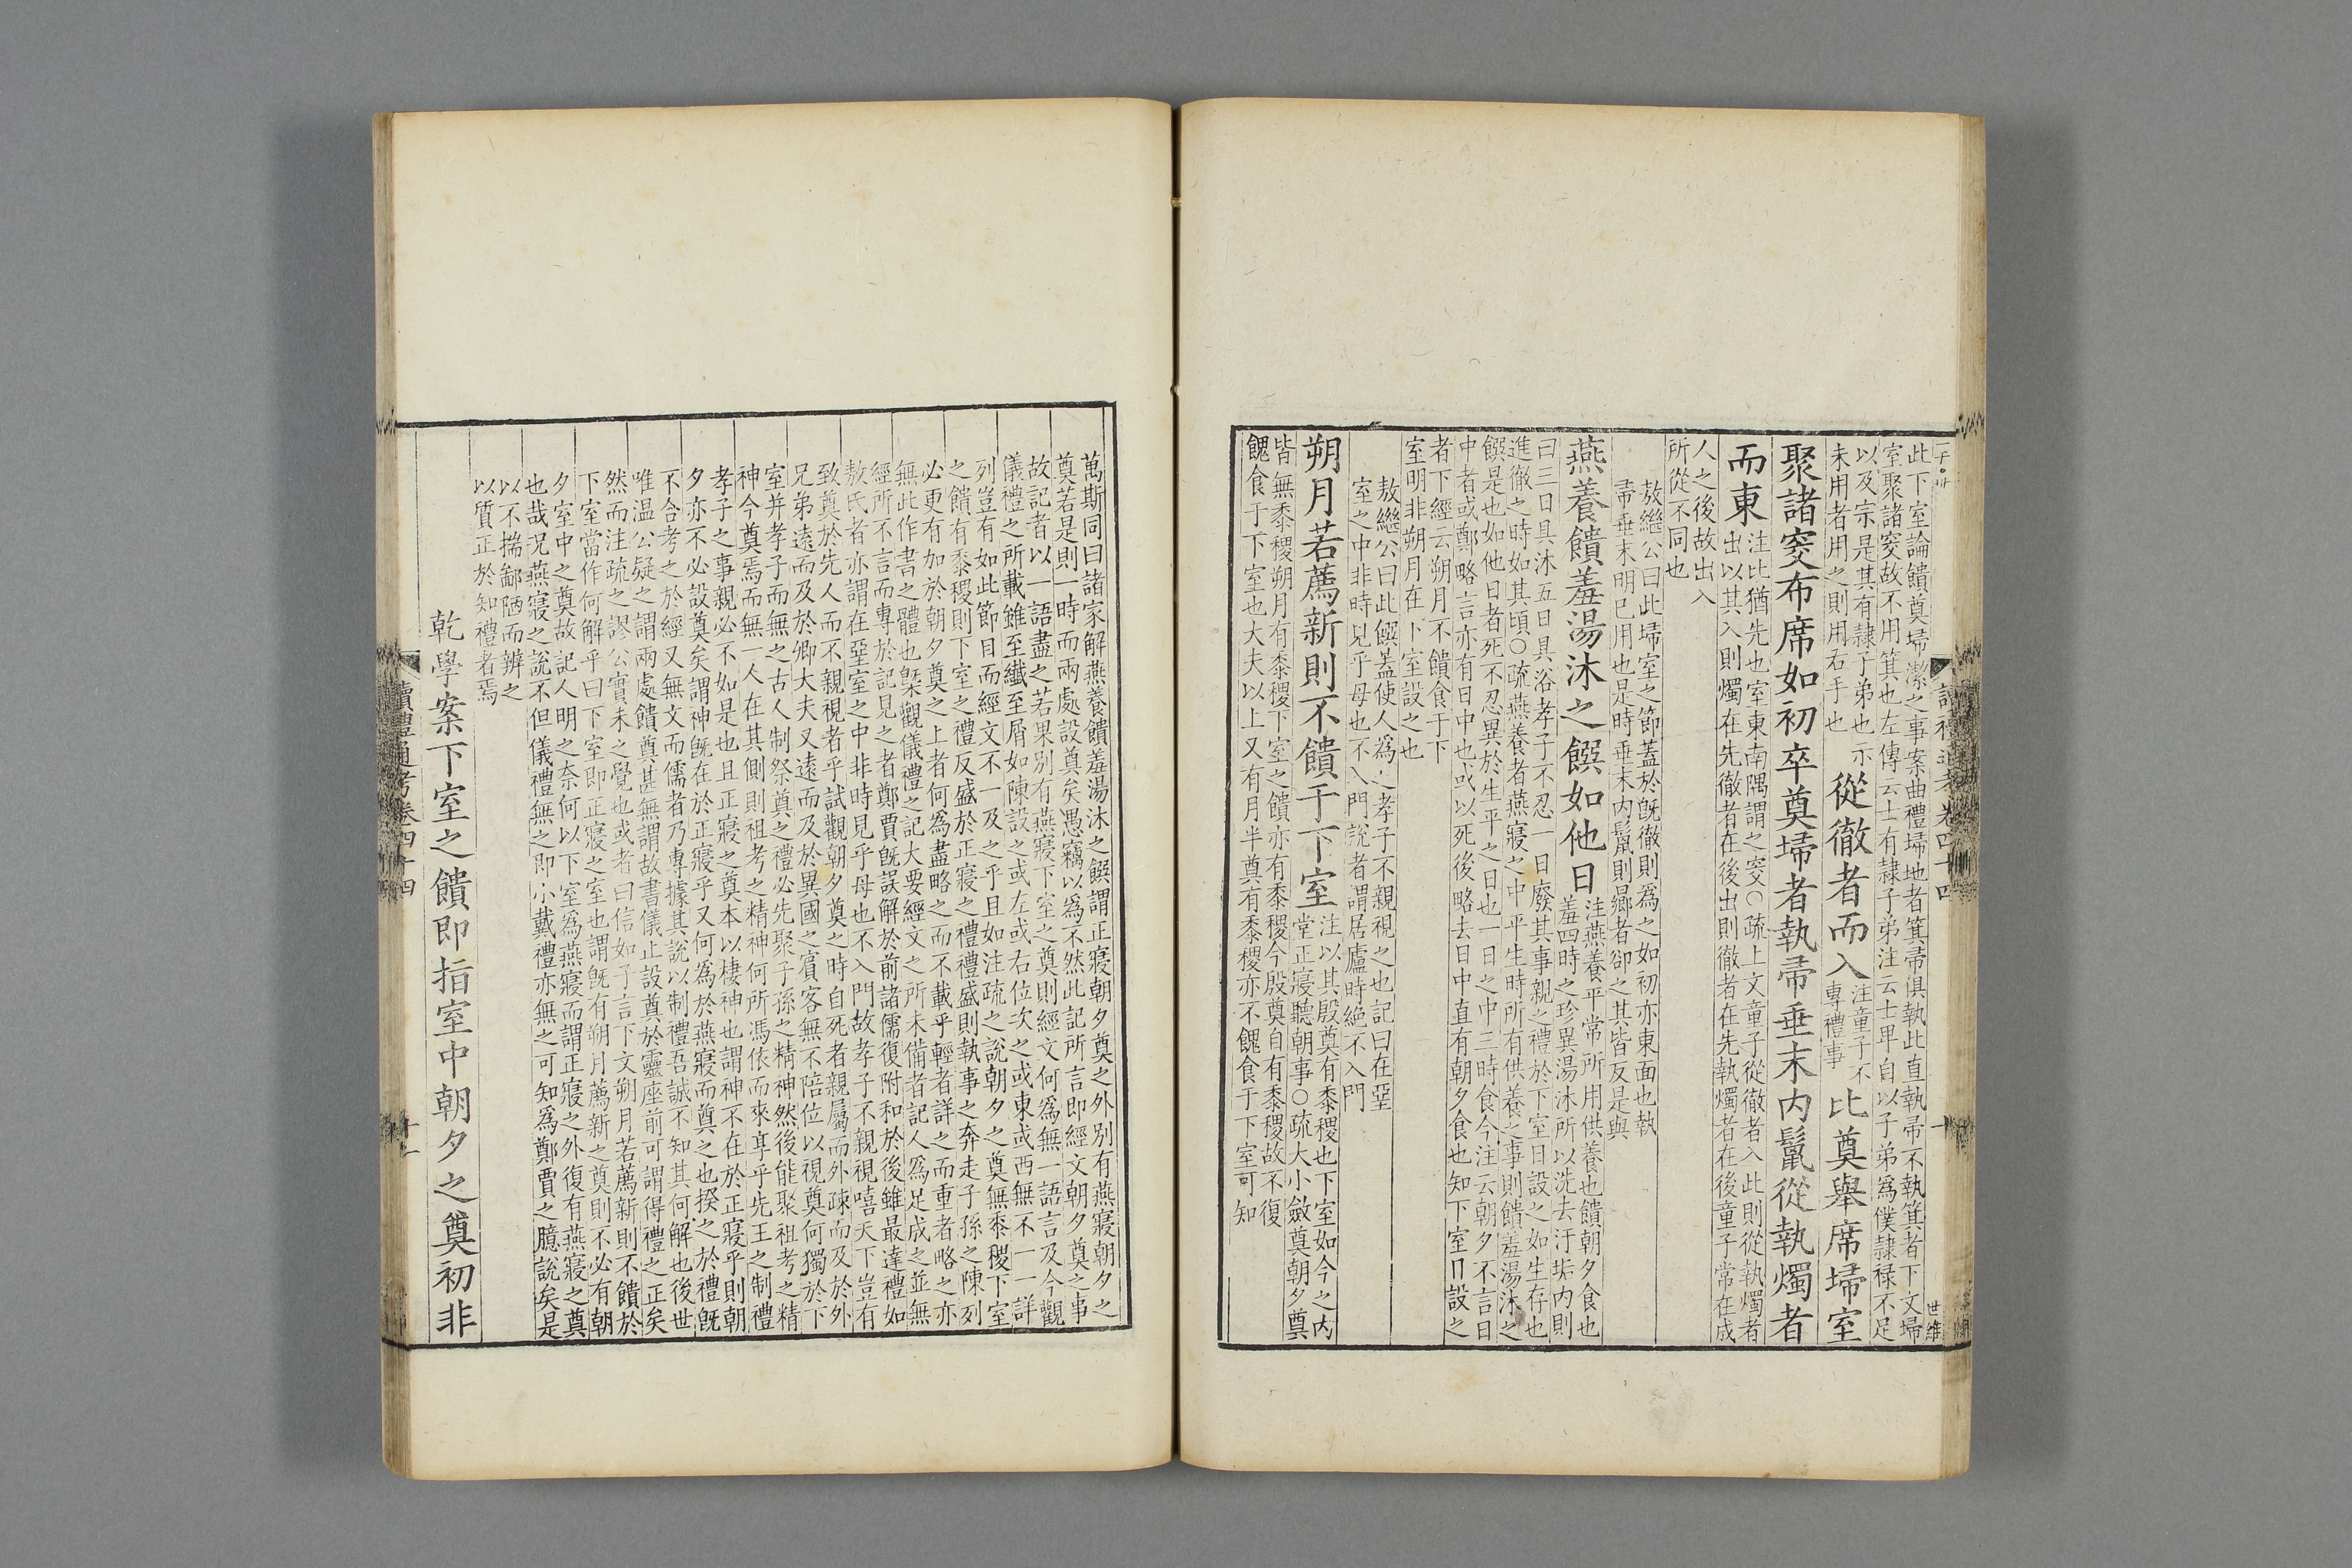 此下室論饋奠埽潔之事案曲禮埽地者箕帚俱執此直執帚不執箕者下文埽
室聚諸窔故不用箕也左傳云士有隸子弟注云士卑自以子弟爲僕隸祿不足
以及宗是其有隸子弟也示
未用者用之則用右手也
從徹者而入
注童子不
專禮事
比奠舉席埽室
聚諸窔布席如初卒奠埽者執帚垂末內鬣從執燭者
而東
注比猶先也室東南隅謂之窔○疏上文童子從徹者入此則從執燭者
出以其入則燭在先徹者在後出則徹者在先執燭者在後童子常在成
人之後故出入
所從不同也
敖繼公曰此埽室之節蓋於旣徹則爲之如初亦東面也執
帚垂末明已用也是時垂末内鬣則曏者卻之其皆反是與
燕養饋羞湯沐之饌如他日
注燕養平常所用供養也饋朝夕食也
羞四時之珍異湯沐所以洗去汙垢内則
曰三日具沐五日具浴孝子不忍一日廢其事親之禮於下室日設之如生存也
進徹之時如其頃○疏燕養者燕寢之中平生時所有供養之事則饋羞湯沐之
饌是也如他日者死不忍異於生平之日也一日之中三時食今注云朝夕不言日
中者或鄭略言亦有日中也或以死後略去日中直有朝夕食也知下室日設之
者下經云朔月不饋食于下
室明非朔月在下室設之也
敖繼公曰此饌蓋使人爲之孝子不親視之也記曰在堊
室之中非時見乎母也不入門說者謂居廬時絕不入門
朔月若薦新則不饋于下室
注以其殷奠有黍稷也下室如今之內
堂正寢聽朝事○疏大小斂奠朝夕奠
皆無黍稷朔月有黍稷下室之饋亦有黍稷今殷奠自有黍稷故不復
餽食于下室也大夫以上又有月半奠有黍稷亦不餽食于下室可知
讀禮通考卷四十四
世維
萬斯同曰諸家解燕養饋羞湯沐之饌謂正寢朝夕奠之外別有燕寢朝夕之
奠若是則一時而兩處設奠矣愚竊以爲不然此記所言即經文朝夕奠之事
故記者以一語盡之若果別有燕寢下室之奠則經文何爲無一語言及今觀
儀禮之所載雖至纖至屑如陳設之或左或右位次之或東或西無不一一詳
列豈有如此節目而經文不一及之乎且如注疏之說朝夕之奠無黍稷下室
之饋有黍稷則下室之禮反盛於正寢之禮禮盛則執事之奔走子孫之陳列
必更有加於朝夕奠之上者何爲盡略之而不載乎輕者詳之而重者略之亦
無此作書之體也槩觀儀禮之記大要經文之所未備者記人爲足成之並無
經所不言而專於記見之者鄭賈旣誤解於前諸儒復附和於後雖最達禮如
敖氏者亦謂在堊室之中非時見乎母也不入門故孝子不親視嘻天下豈有
致奠於先人而不親視者乎試觀朝夕奠之時自死者親屬而外疎而及於外
兄弟遠而及於卿大夫又遠而及於異國之賓客無不陪位以視奠何獨於下
室并孝子而無之古人制祭奠之禮必先聚子孫之精神然後能聚祖考之精
神今奠焉而無一人在其側則祖考之精神何所馮依而來享乎先王之制禮
孝子之事親必不如是也且正寢之奠本以棲神也謂神不在於正寢乎則朝
夕亦不必設奠矣謂神旣在於正寢乎又何爲於燕寢而奠之也揆之於禮旣
不合考之於經又無文而儒者乃專據其說以制禮吾誠不知其何解也後世
唯溫公疑之謂兩處饋奠甚無謂故書儀止設奠於靈座前可謂得禮之正矣
然而注疏之謬公實未之覺也或者曰信如子言下文朔月若薦新則不饋於
下室當作何解乎曰下室即正寢之室也謂旣有朔月薦新之奠則不必有朝
夕室中之奠故記人明之奈何以下室爲燕寢而謂正寢之外復有燕寢之奠
也哉况燕寢之說不但儀禮無之即小戴禮亦無之可知爲鄭賈之臆說矣是
以不揣鄙陋而辨之
以質正於知禮者焉
乾學案下室之饋即指室中朝夕之奠初非
讀禮通考卷四十四
十一